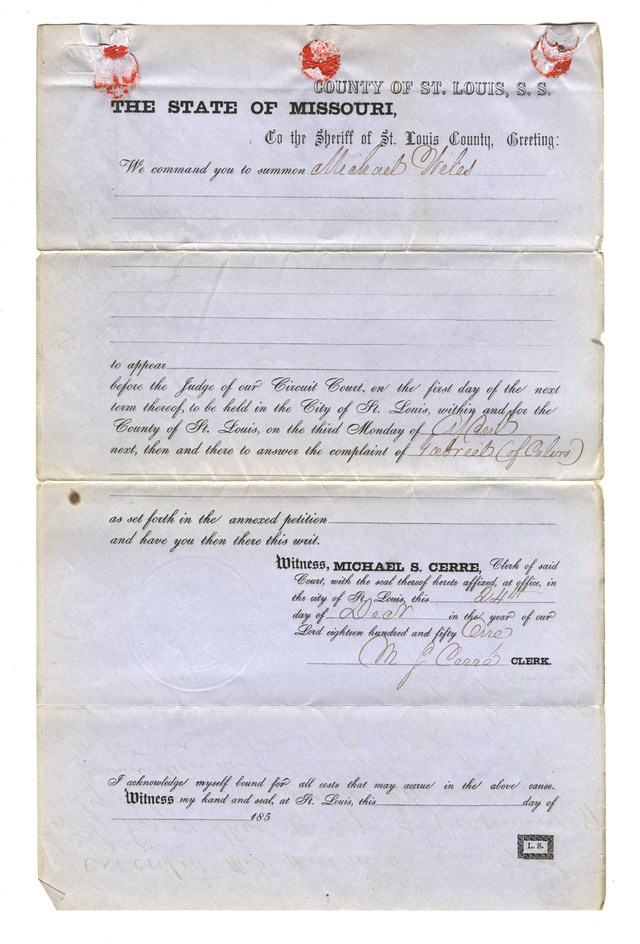 COUNTY OF ST. LOUIS, S. S.
THE STATE OF MISSOURI,
To the Sheriff of St. Louis County, Greeting:
We command you to summon Michael
to appear
before the Judge of our Circuit Court, on the first day of the next
term thereof, to be held in the City of St. Louis, within and for the
County of St. Louis, on the third Monday of
next, then and there to answer the complaint of Gabriel (of Color)
as set forth in the annexed petition
and have you then there this writ.
Witness, MICHAEL S. CERRE, Clerk of said
Court, with the seal thereof hereto affixed, at office, in
the city of St. Louis, this 24th
day of in the year of our
Lord eighteen hundred and fifty One
M S Cerré CLERK.
I acknowledge myself bound for all costs that may accrue in the above cause.
Witness my hand and seal, at St. Louis, this day of
185
L. S.